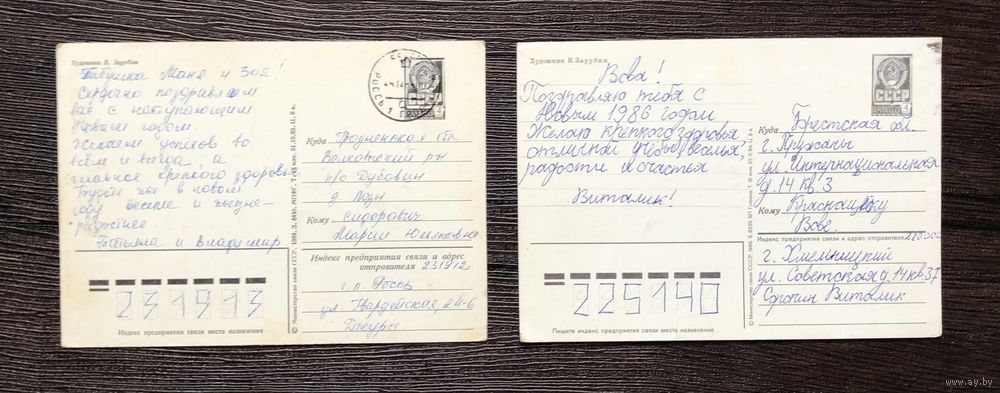 Художник В. Зарубин
Бабушка Маня и Зоя!
Сердечно поздравляем
вас с наступающим
Новым годом.
Желаем успехов во
всём и всегда, а
главное крепкого здоровья
Будьте же в новом
году веселые и жизне-
радостнее
Татьяна и Владимир
СССР
Куда Гродненская обл.
Волковысский р-н
п/о Дубовцы
д.
Кому Сидорович
Марии Юльяновне
Индекс предприятия связи и адрес
отправителя 231912
г.п. Россь
ул Гвардейская, 2-6
Джуры
231913
Индекс предприятия связи места назначения
© Министерство связи СССР, 1984.
Художник В. Зарубин
Вова!
Поздравляю тебя с
Новым 1986 годом
Желаю крепкого здоровья
отличной учебы, веселья,
радости и счастья
Виталик!
СССР
Куда Брестская обл.
г. Пружаны
ул. Интернациональная
д. 14 кв. 3
Кому Краснацвку
Вове.
Индекс предприятия связи и адрес отправителя 280000
г. Хмельницкий
ул. Советская д. 14 кв 37
Сорокин Виталик
225140
Пишите индекс предприятия связи места назначения
© Министерство связи СССР, 1985.
www.ay.by